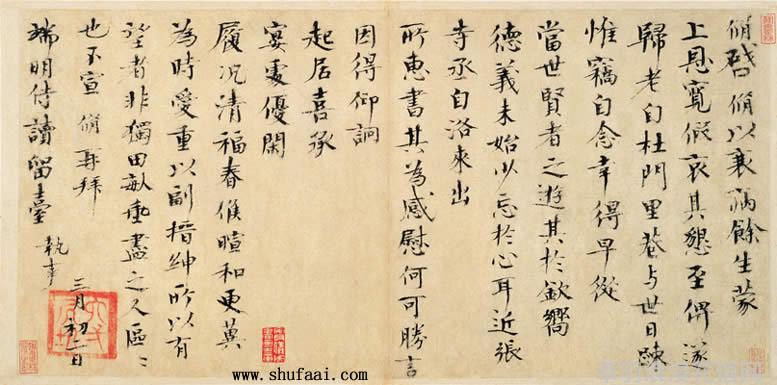 脩啓脩以衰病餘生蒙
上恩寬假哀其懇至俾遂
歸老自杜門里巷与世日疎
惟竊自念幸得早從
當世賢者之遊其於欽嚮
德義未始少忘於心耳近張
寺丞自洛來出
所惠書其為感慰何可勝言
因得仰詢
起居喜承
宴處優閑
履況清福春候暄和更冀
為時愛重以副搢紳所以有
望者非獨田畝垂盡之人區〻
也不宣 脩再拜
端明侍讀留臺 執事
三月初二日
www.shufaai.com